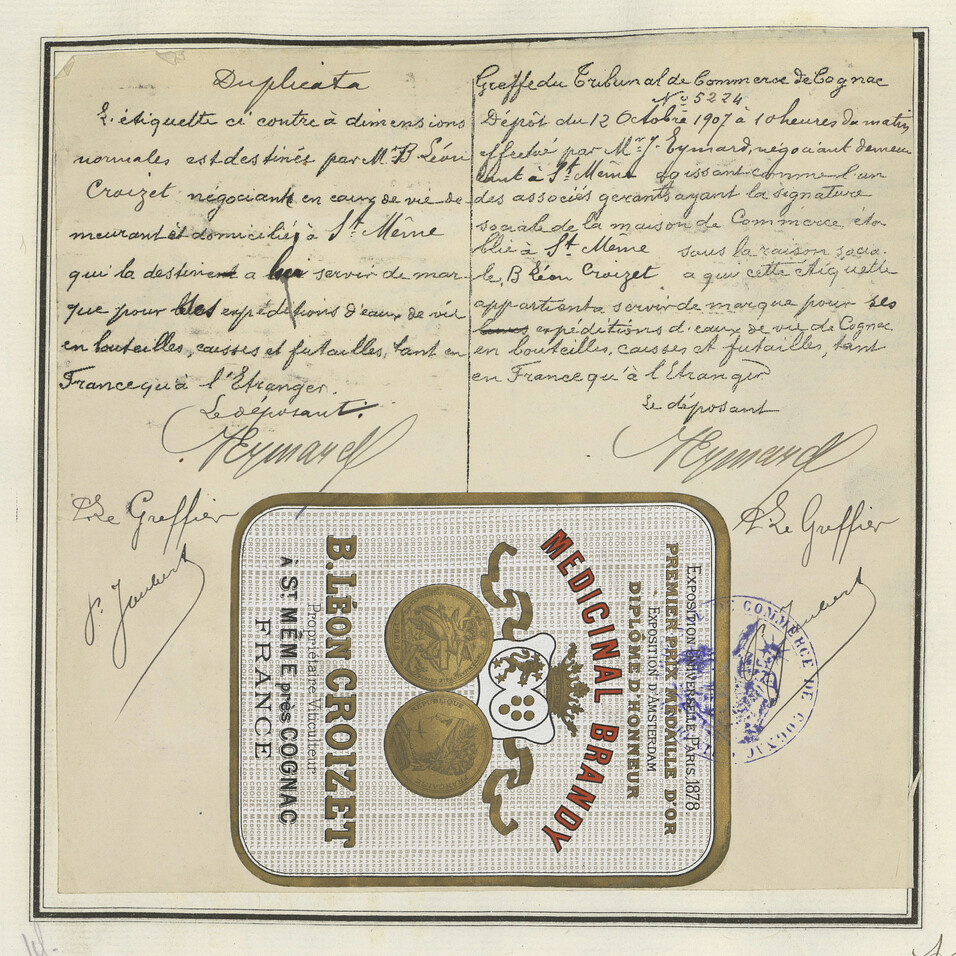 Duplicata
L'étiquette ci contre à dimensions
normales est destinés par Mr B Léon
Croizet négociant en eaux de vie de
meurant et domicilié à St Même
qui la destine a lui servir de mar-
que pour ses expéditions d'eaux de vie
en bouteilles, caisses et futailles, tant en
France qu'à l'Etranger.
Le déposant.
JEymard
P. Le Greffier
P. Joubert
Greffe du Tribunal de Commerce de Cognac
No 5224
Dépôt du 12 Octobre 1907 à 10 heures du matin
effectué par Mr J Eymard, négociant demeu
rant à St Même agissant comme l'un
des associés gerants ayant la signature
sociale de la maison de Commerce éta
blie à St Même sous la raison socia
le, B Léon Croizet a qui cette étiquette
appartient a servir de marque pour ses
expéditions d'eaux de vie de Cognac
en bouteilles, caisses et futailles, tant
en France qu'à l'Etranger
Le déposant
JEymard
P. Le Greffier
Joubert
COMMERCE DE COGNAC
EXPOSITION UNIVERSELLE PARIS 1878
PREMIER PRIX MÉDAILLE D'OR
EXPOSITION D'AMSTERDAM
DIPLÔME D'HONNEUR
MEDICINAL BRANDY
REPUBLIQUE
B. LÉON CROIZET
Propriétaire Viticulteur
À ST MÊME près COGNAC
FRANCE